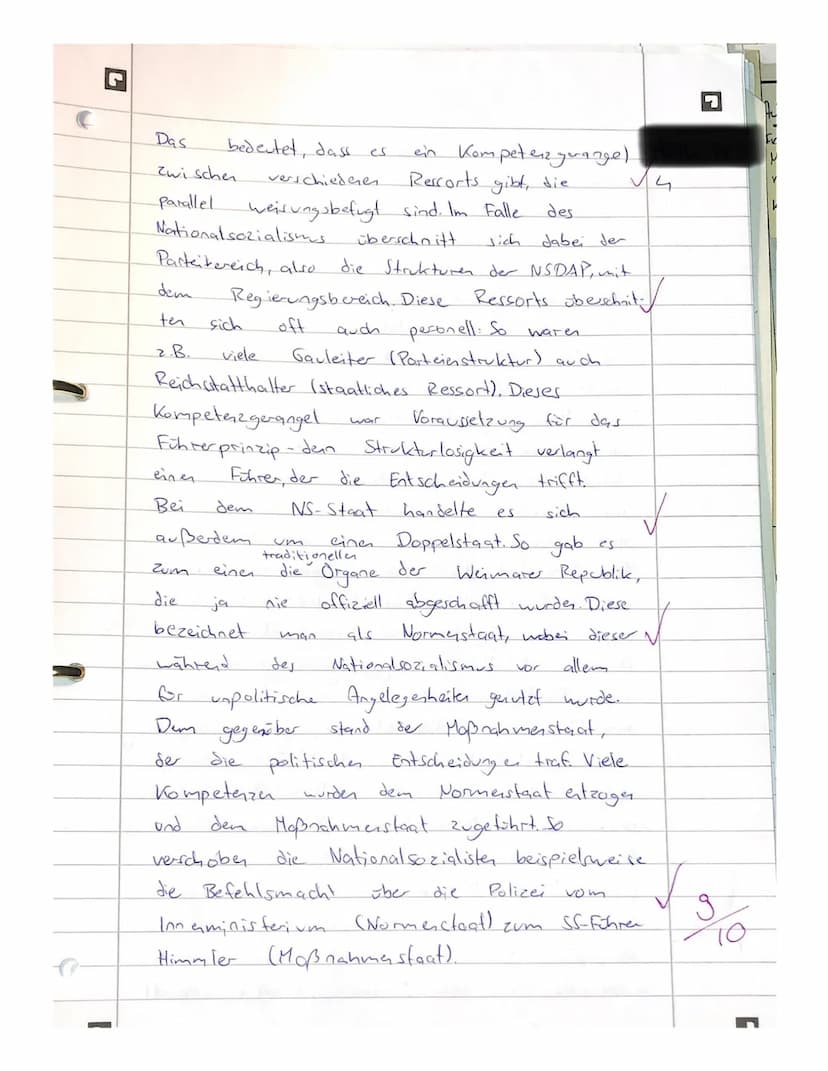 Das bedeutet, dass es ein Kompetenzgerangel
zwischen verschiedenen Ressorts gibt, die
parallel weisungsbefugt sind. Im Falle des
Nationalsozialismus überschnitt sich dabei der
Parteibereich, also die Strukturen der NSDAP, mit
dem Regierungsbereich. Diese Ressorts überschnit-
ten sich oft auch personell. So waren
z.B. viele Gauleiter (Parteienstruktur) auch
Reichstatthalter (staatliches Ressort). Dieses
Kompetenzgerangel war Voraussetzung für das
Führerprinzip - denn Strukturlosigkeit verlangt
einen Führer, der die Entscheidungen trifft.
Bei dem NS-Staat handelte es sich
außerdem um einen Doppelstaat. So gab es
zum einen die traditionellen Organe der Weimarer Republik,
die ja nie offiziell abgeschafft wurden. Diese
bezeichnet man als Normenstaat, wobei dieser
während des Nationalsozialismus vor allem
für unpolitische Angelegenheiten genutzt wurde.
Dem gegenüber stand der Maßnahmenstaat,
der die politischen Entscheidungen traf. Viele
Kompetenzen wurden dem Normenstaat entzogen
und dem Maßnahmenstaat zugeführt. So
verschoben die Nationalsozialisten beispielsweise
die Befehlsmacht über die Polizei vom
Innenministerium (Normenstaat) zum SS-Führer
Himmler (Maßnahmenstaat).
4
9/10